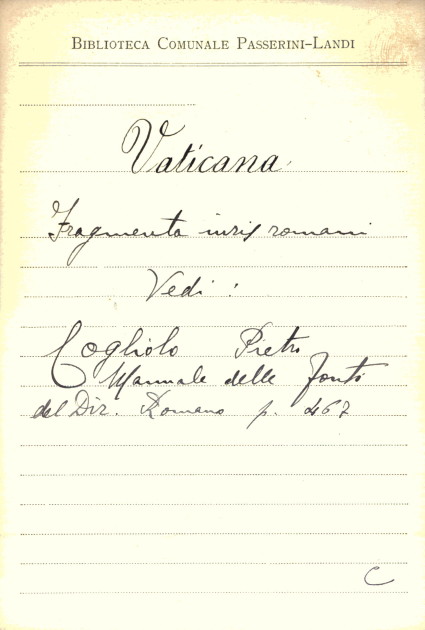 BIBLIOTECA COMUNALE PASSERINI-LANDI
Vaticana
Fragmenta iuris romani
Vedi :
Cogliolo Pietro
Manuale delle fonti
del Dir. Romano p. 467
C